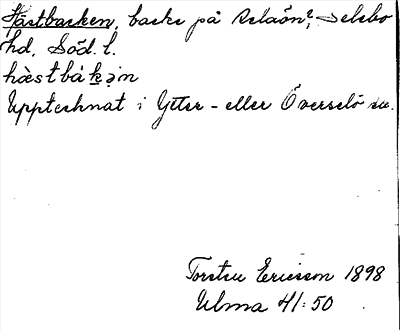 Hästbacken, backe på Selaön?, Selebo
hd, Söd. l.
hæ̀stbàkən
Upptecknat i Ytter- eller Överselö sn.
Torsten Ericsson 1898
Ulma 41:50